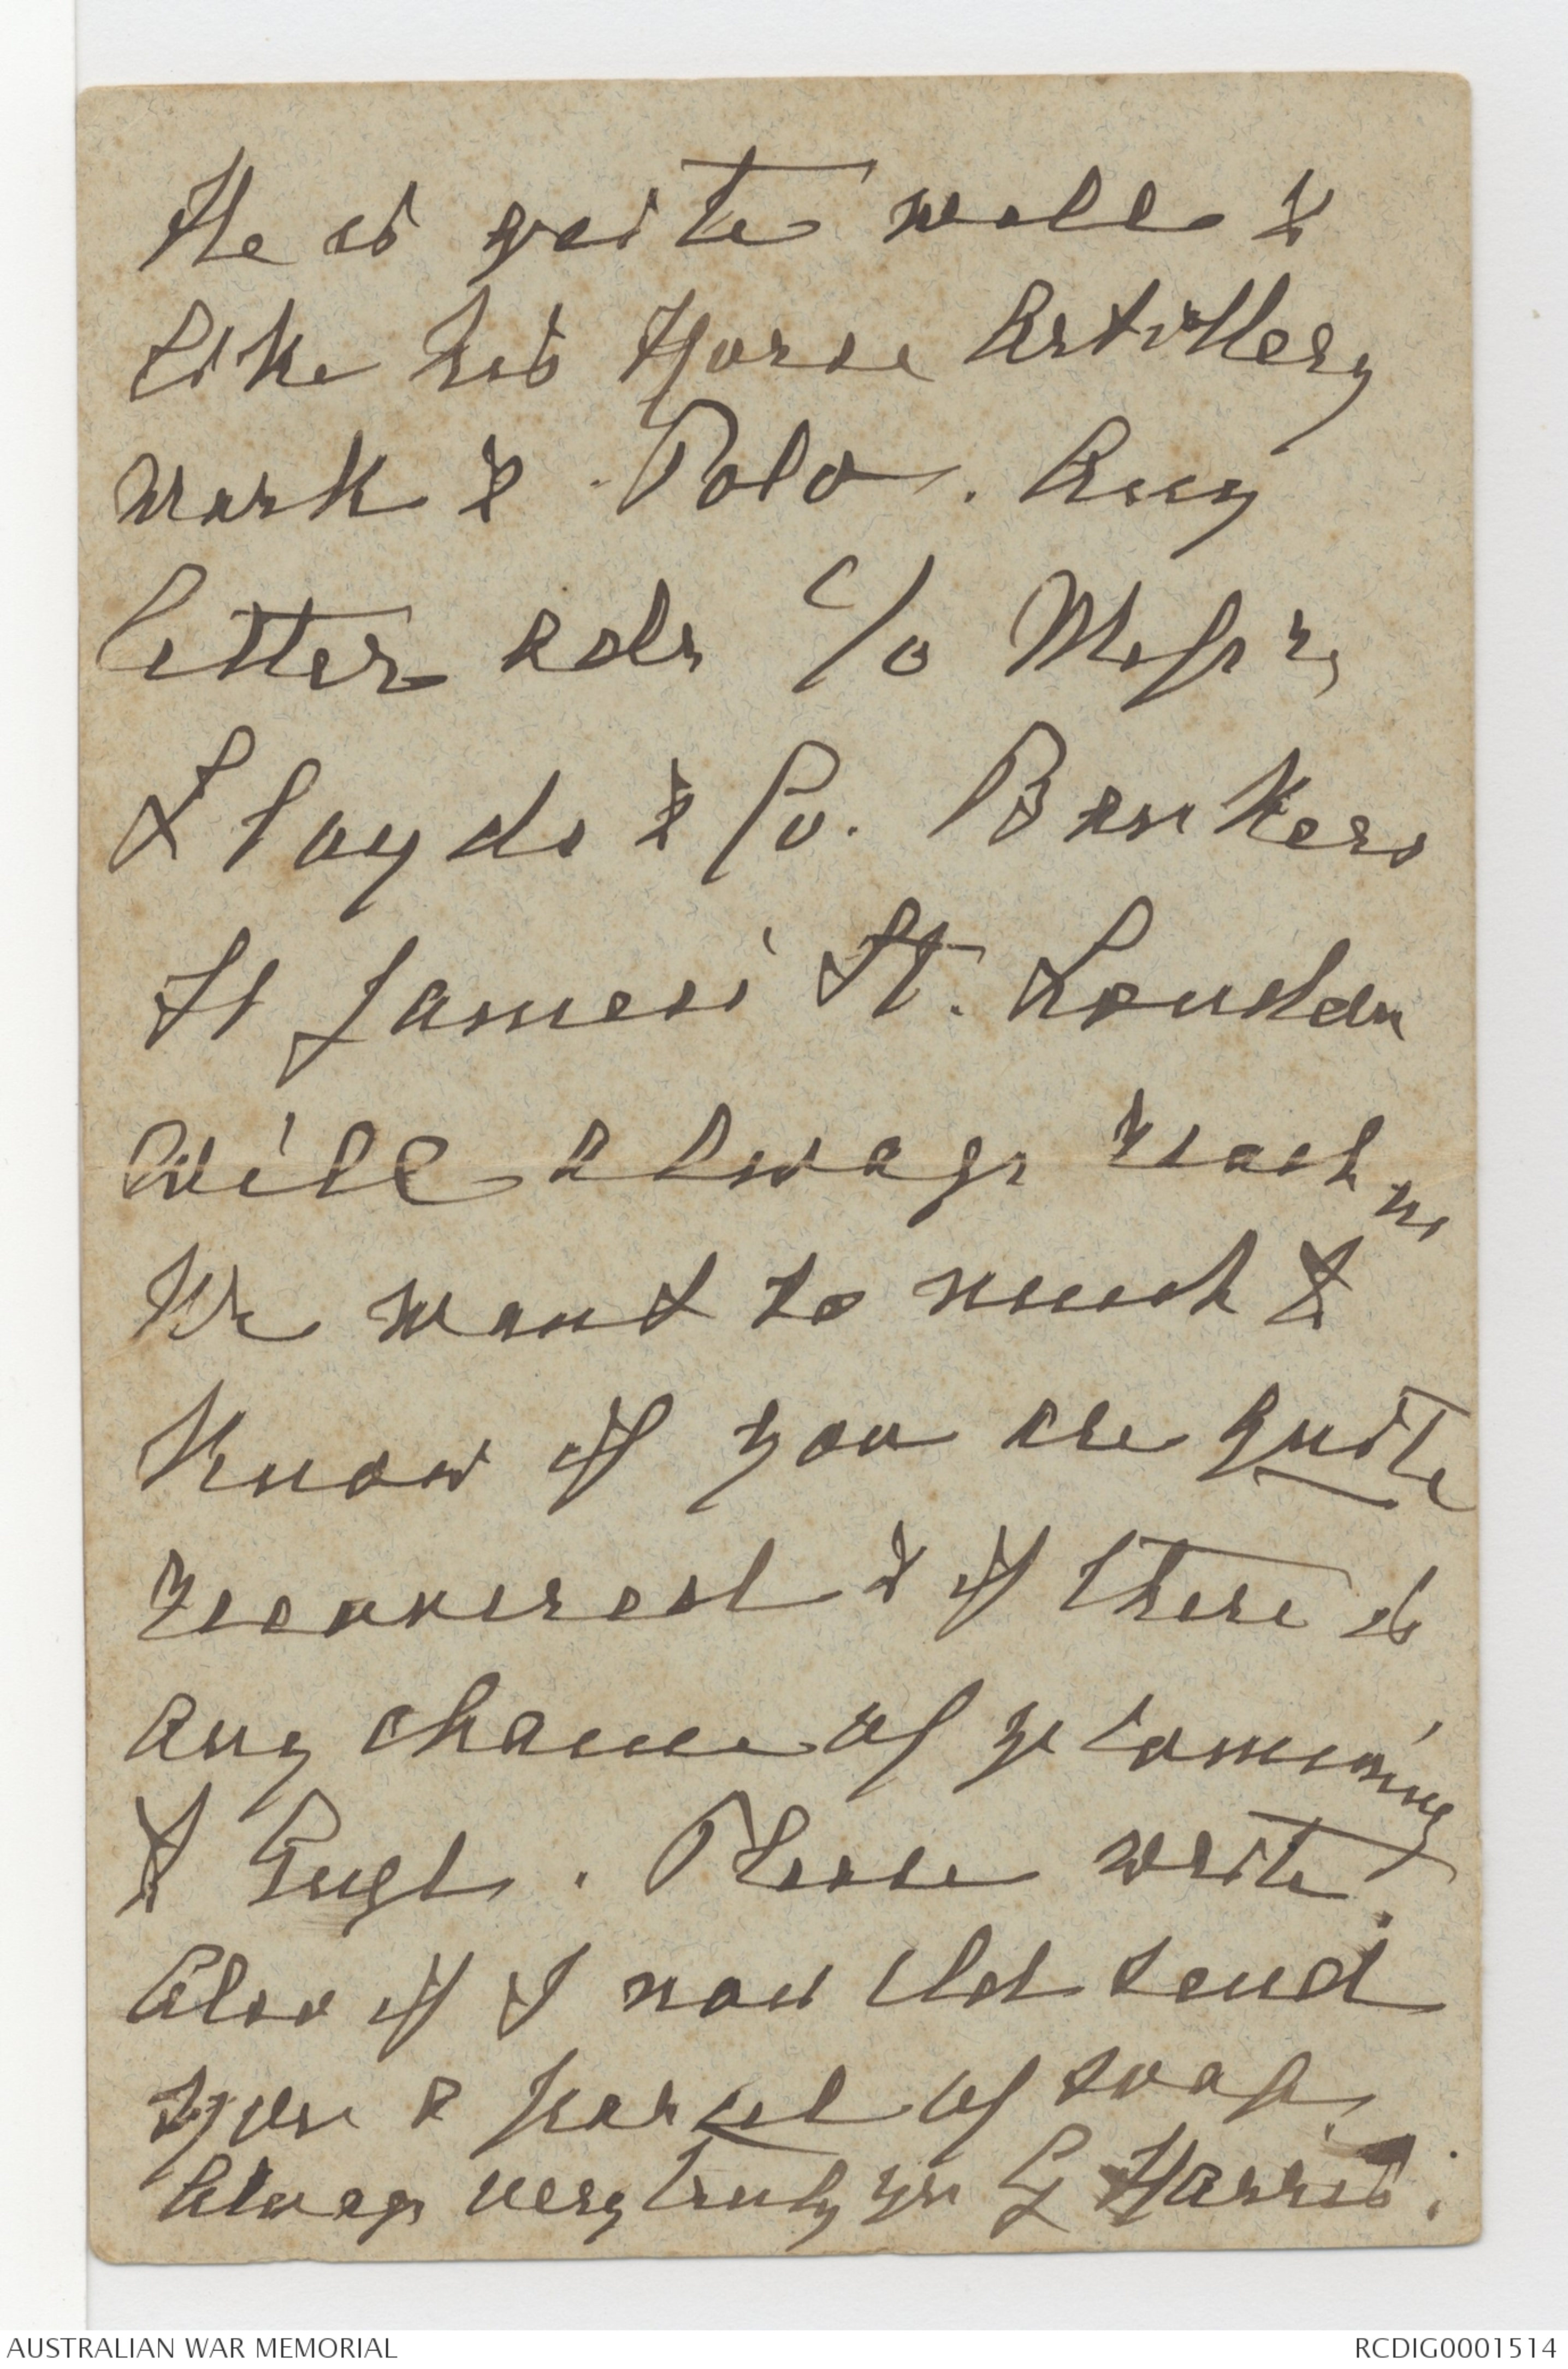 He is quite well &
like his Horse Artillery
work & Polo. Any
letter adr c/o Messrs,
Lloyds & Co. Bankers
St James's St. London
will always reach us
We want so much to
know if you are quite
recovered & if there is
any chance of yr coming
to Engld. Please write.
Also if I now shd send
you a parcel of soap.
Always very truly yrs G Harris.
AUSTRALIAN WAR MEMORIAL
RCDIG0001514